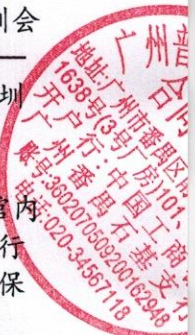 训会
圳
管内
行
保
广州普
合同
地址:广州市番禺区
1638号(3号厂房)101、
开户行:中国工商
广州番禺石基支行
账号:3602070509200162948
电话:020-34567118